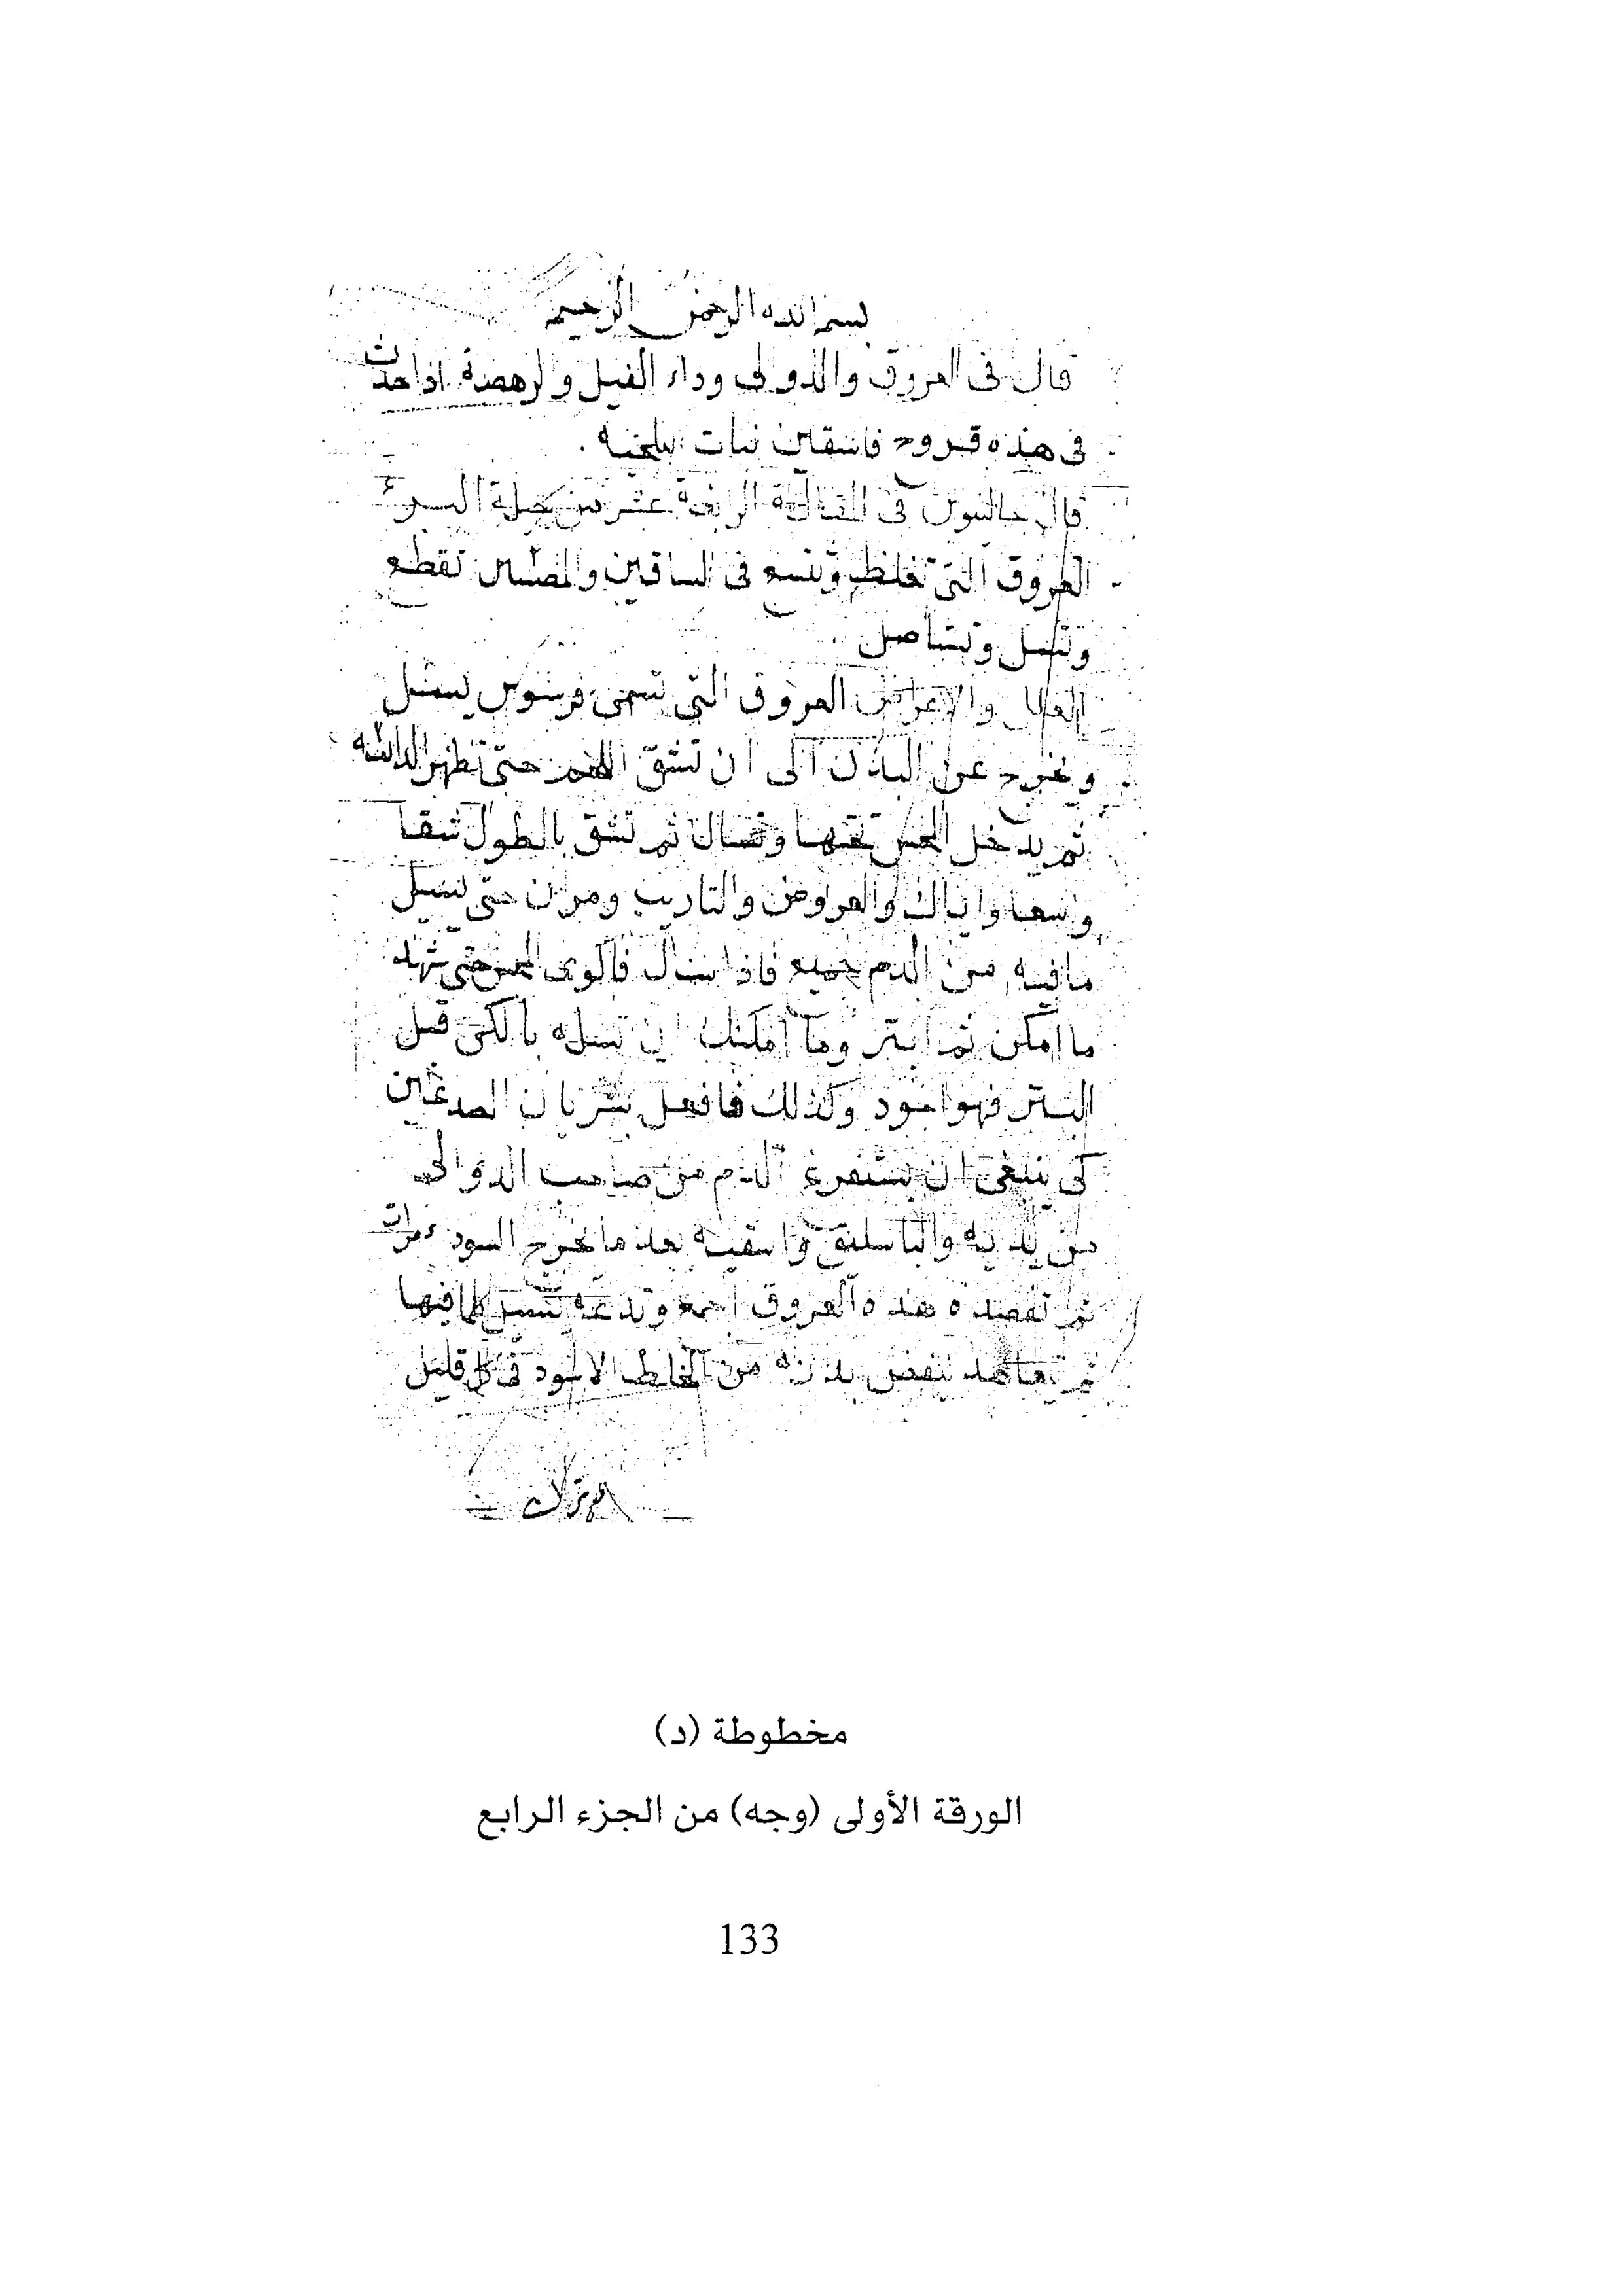 بسم الله الرحمن الرحيم
قال فى العروق والدوالى وداء الفيل والرهصة اذا حدث
فى هذه قروح فاسقين نبات
قال جالينوس فى المقالة الرابعة عشر من حيلة البرء
العروق التى تغلظ وتتسع فى الساقين تقطع
وتسل وتستاصل
العلل والاعراض العروق التى تسمى يسيل
عن البدن الى ان تشق حتى تظهر
ثم يدخل تحتها وتسال ثم تشق بالطول شقا
واسعا واياك والعروض والتاريب حتى يسيل
ما فيه من الدم جميعه فاذا سال حتى
ما امكن ثم ابتر وما امكنك ان تسله بالكى قبل
البتر فهو اجود وكذلك فافعل بشريان الصدغين
كى ينبغى ان يستفرغ الدم من صاحب الدوالى
من يديه والباسليق واسقيه بعد ما يخرج السوداء مرات
ثم تفصده هذه العروق اجمع وتدعه يسيل كلما فيها
ثم تعاهد بنفض بدنه من الخلط الاسود فى كل قليل
مخطوطة (د)
الورقة الأولى (وجه) من الجزء الرابع
133